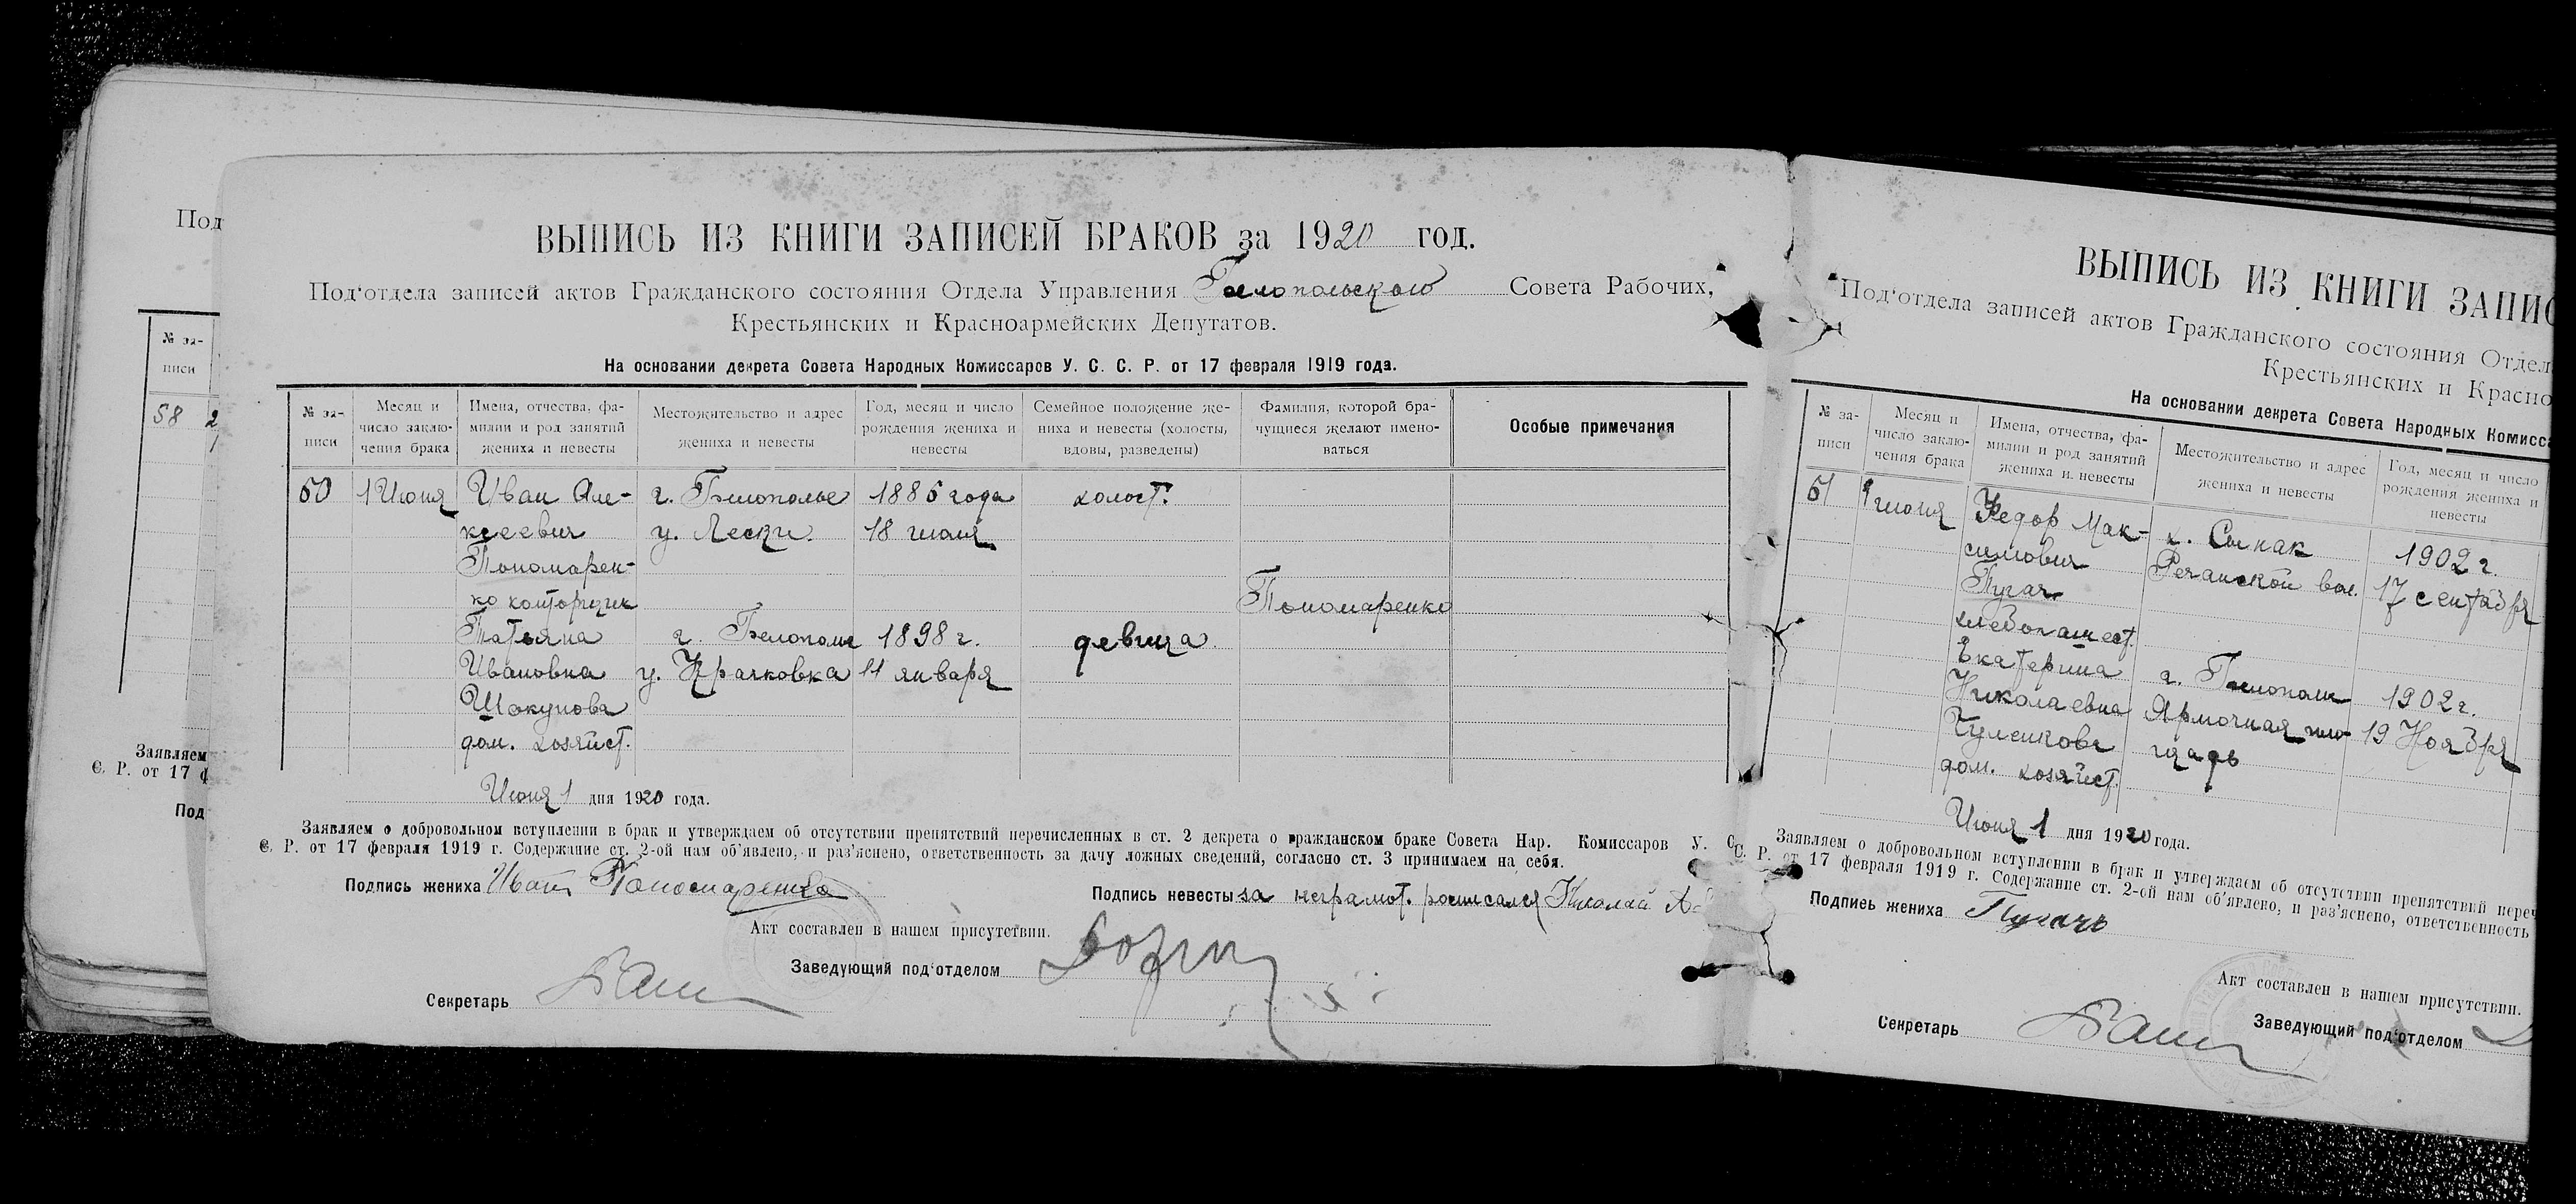 Под
№ за-
писи
58 2
1
Заявляем
С. Р. от 17 ф
Под
ВЫПИСЬ ИЗ КНИГИ ЗАПИСЕЙ БРАКОВ за 1920 год.
Под‘отдела записей актов Гражданского состояния Отдела Управления Белопольского Совета Рабочих,
Крестьянских и Красноармейских Депутатов.
На основании декрета Совета Народных Комиссаров У. С. С. Р. от 17 февраля 1919 года.
№ за-
писи
Месяц и
число заклю-
чения брака
Имена, отчества, фа-
милии и род занятий
жениха и невесты
Местожительство и адрес
жениха и невесты
Год, месяц и число
рождения жениха и
невесты
Семейное положение же-
ниха и невесты (холосты,
вдовы, разведены)
Фамилия, которой бра-
чущиеся желают имено-
ваться
Особые примечания
60 1 Июня Иван Але- г. Белополье 1886 года холост.
ксеевич у. Лески. 18 июля
Пономарен-
ко конторщик Пономаренко
Татьяна г. Белополье 1898 г. девица
Ивановна у. Крачковка 11 января
Шокунова
дом. хозяйст.
Июня 1 дня 1920 года.
Заявляем о добровольном вступлении в брак и утверждаем об отсутствии препятствий перечисленных в ст. 2 декрета о гражданском браке Совета Нар. Комиссаров У. С.
С. Р. от 17 февраля 1919 г. Содержание ст. 2-ой нам об’явлено, и раз’яснено, ответственность за дачу ложных сведений, согласно ст. 3 принимаем на себя.
Подпись жениха Иван Пономаренко
Подпись невесты за неграмот. росписался Николай
Акт составлен в нашем присутствии.
Заведующий под‘отделом
Секретарь
ВЫПИСЬ ИЗ КНИГИ ЗАПИС
Под‘отдела записей актов Гражданского состояния Отдел
Крестьянских и Красно
На основании декрета Совета Народных Комисса
№ за-
писи
Месяц и
число заклю-
чения брака
Имена, отчества, фа-
милии и род занятий
жениха и невесты
Местожительство и адрес
жениха и невесты
Год, месяц и число
рождения жениха и
невесты
61 1 июня Федор Мак- х. Сынак 1902 г.
симович Речанской вол. 17 сентября
Пугач
хлебопашест.
Екатерина г. Белополье 1902 г.
Николаевна Ярмочная пло- 19 Ноября
Куленкова щадь
дом. хозяйст.
Июня 1 дня 1920 года.
Заявляем о добровольном вступлении в брак и утверждаем об отсутствии препятствий переч
С. Р. от 17 февраля 1919 г. Содержание ст. 2-ой нам об’явлено, и раз’яснено, ответственность
Подпись жениха Пугачъ
Акт составлен в нашем присутствии.
Заведующий под‘отделом
Секретарь